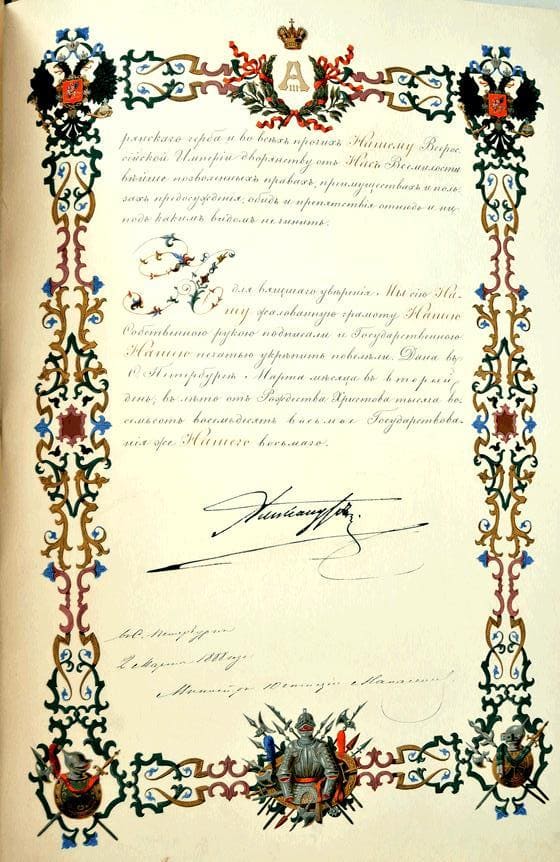 А III
рянскаго герба и во всѣхъ прочихъ Нашему Всерос-
сійской Имперіи дворянству отъ Насъ Всемилости
вѣйше позволенныхъ правахъ, преимуществахъ и поль-
захъ предосужденія, обидъ и препятствія отнюдь и ни
подъ какимъ видомъ не чинить.
для вящшаго увѣренія Мы сію На-
шу жалованную грамоту Нашею
Собственною рукою подписали и Государственною
Нашею печатью укрѣпить повелѣли. Дана въ
С. Петербургѣ Марта мѣсяца въ вторый
день, въ лѣто отъ Рождества Христова тысяча во-
семьсотъ восемьдесятъ восьмое Государствова-
нія же Нашего восьмаго.
Александръ.
въ С. Петербургѣ
2 Марта 1888 года
Министръ Юстиціи